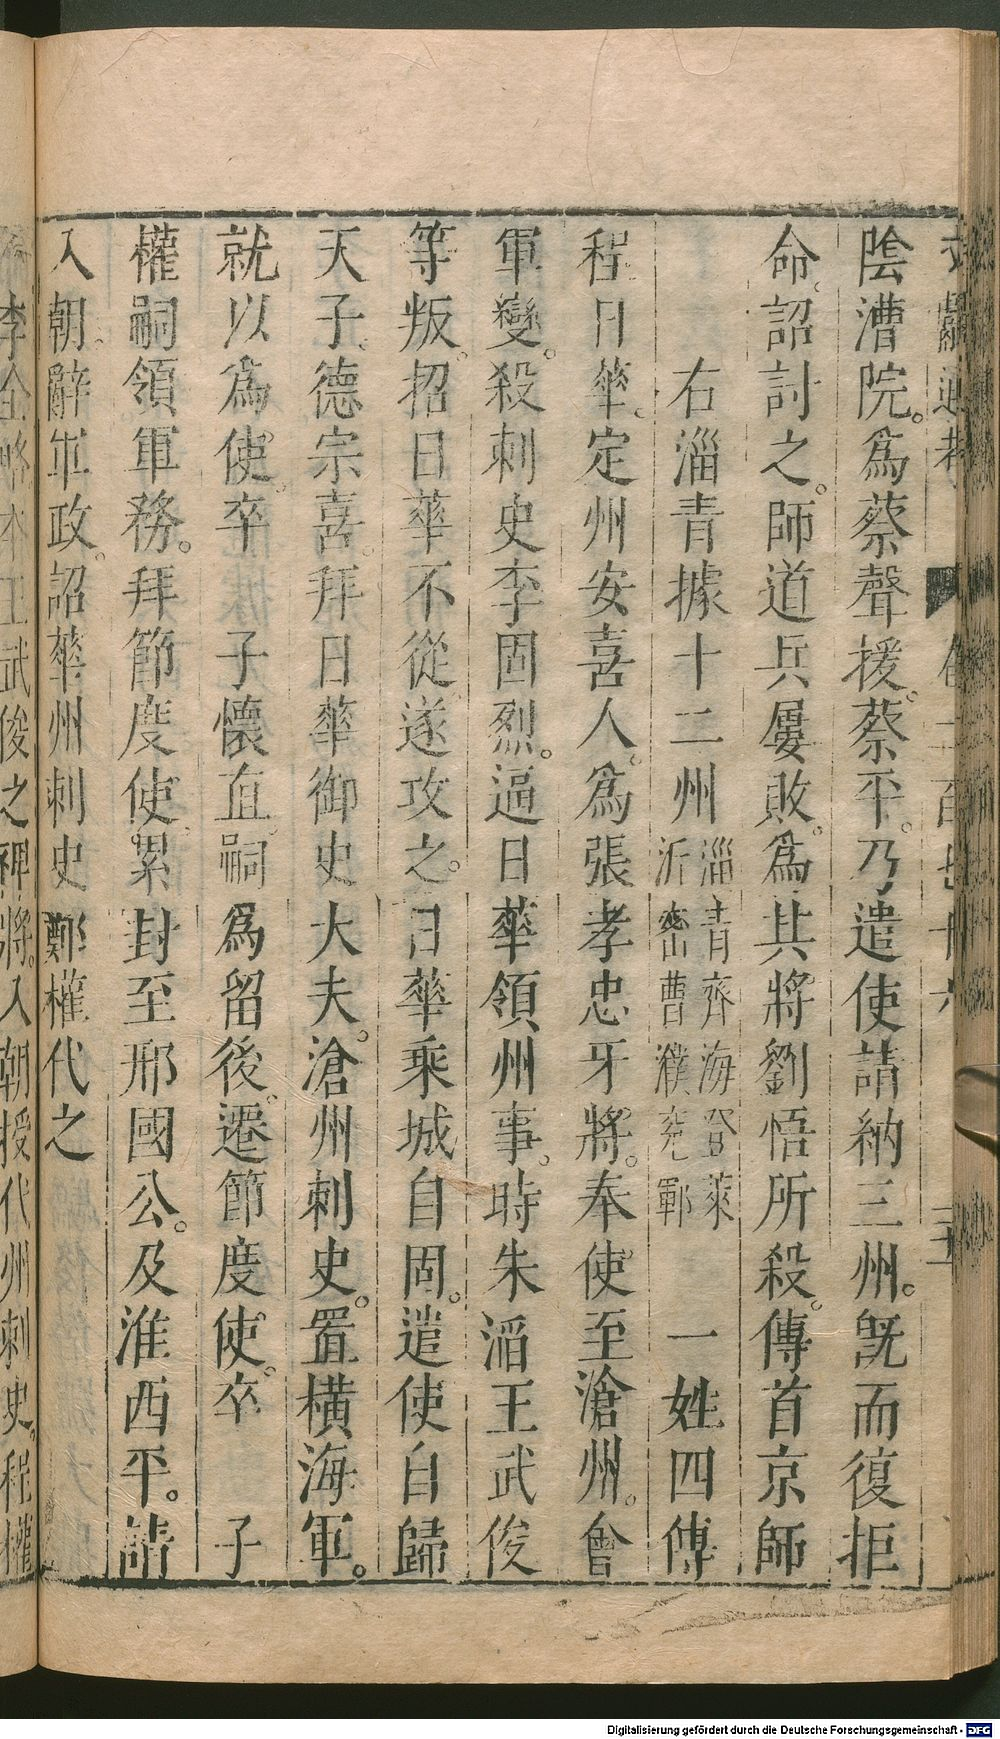 陰漕院。爲蔡聲援。蔡平。乃遣使請納三州。旣而復拒
命。詔討之。師道兵屢敗。爲其將劉悟所殺。傳首京師
右淄青據十二州 淄青齊海登萊沂密曹濮兖鄆 一姓四傳
程日華。定州安喜人。爲張孝忠牙將。奉使至滄州。會
軍變。殺刺史李固烈。逼日華領州事。時朱滔王武俊
等叛。招日華不從。遂攻之。日華乘城自固。遣使自歸
天子。德宗喜。拜日華御史大夫。滄州刺史。置橫海軍。
就以爲使。卒 子懷直嗣爲留後。遷節度使。卒 子
權嗣領軍務。拜節度使。累封至邢國公。及淮西平。請
入朝。辭軍政。詔華州刺史鄭權代之
李全略本王武俊之裨將。入朝授代州刺史。程權
Digitalisierung gefördert durch die Deutsche Forschungsgemeinschaft - DFG